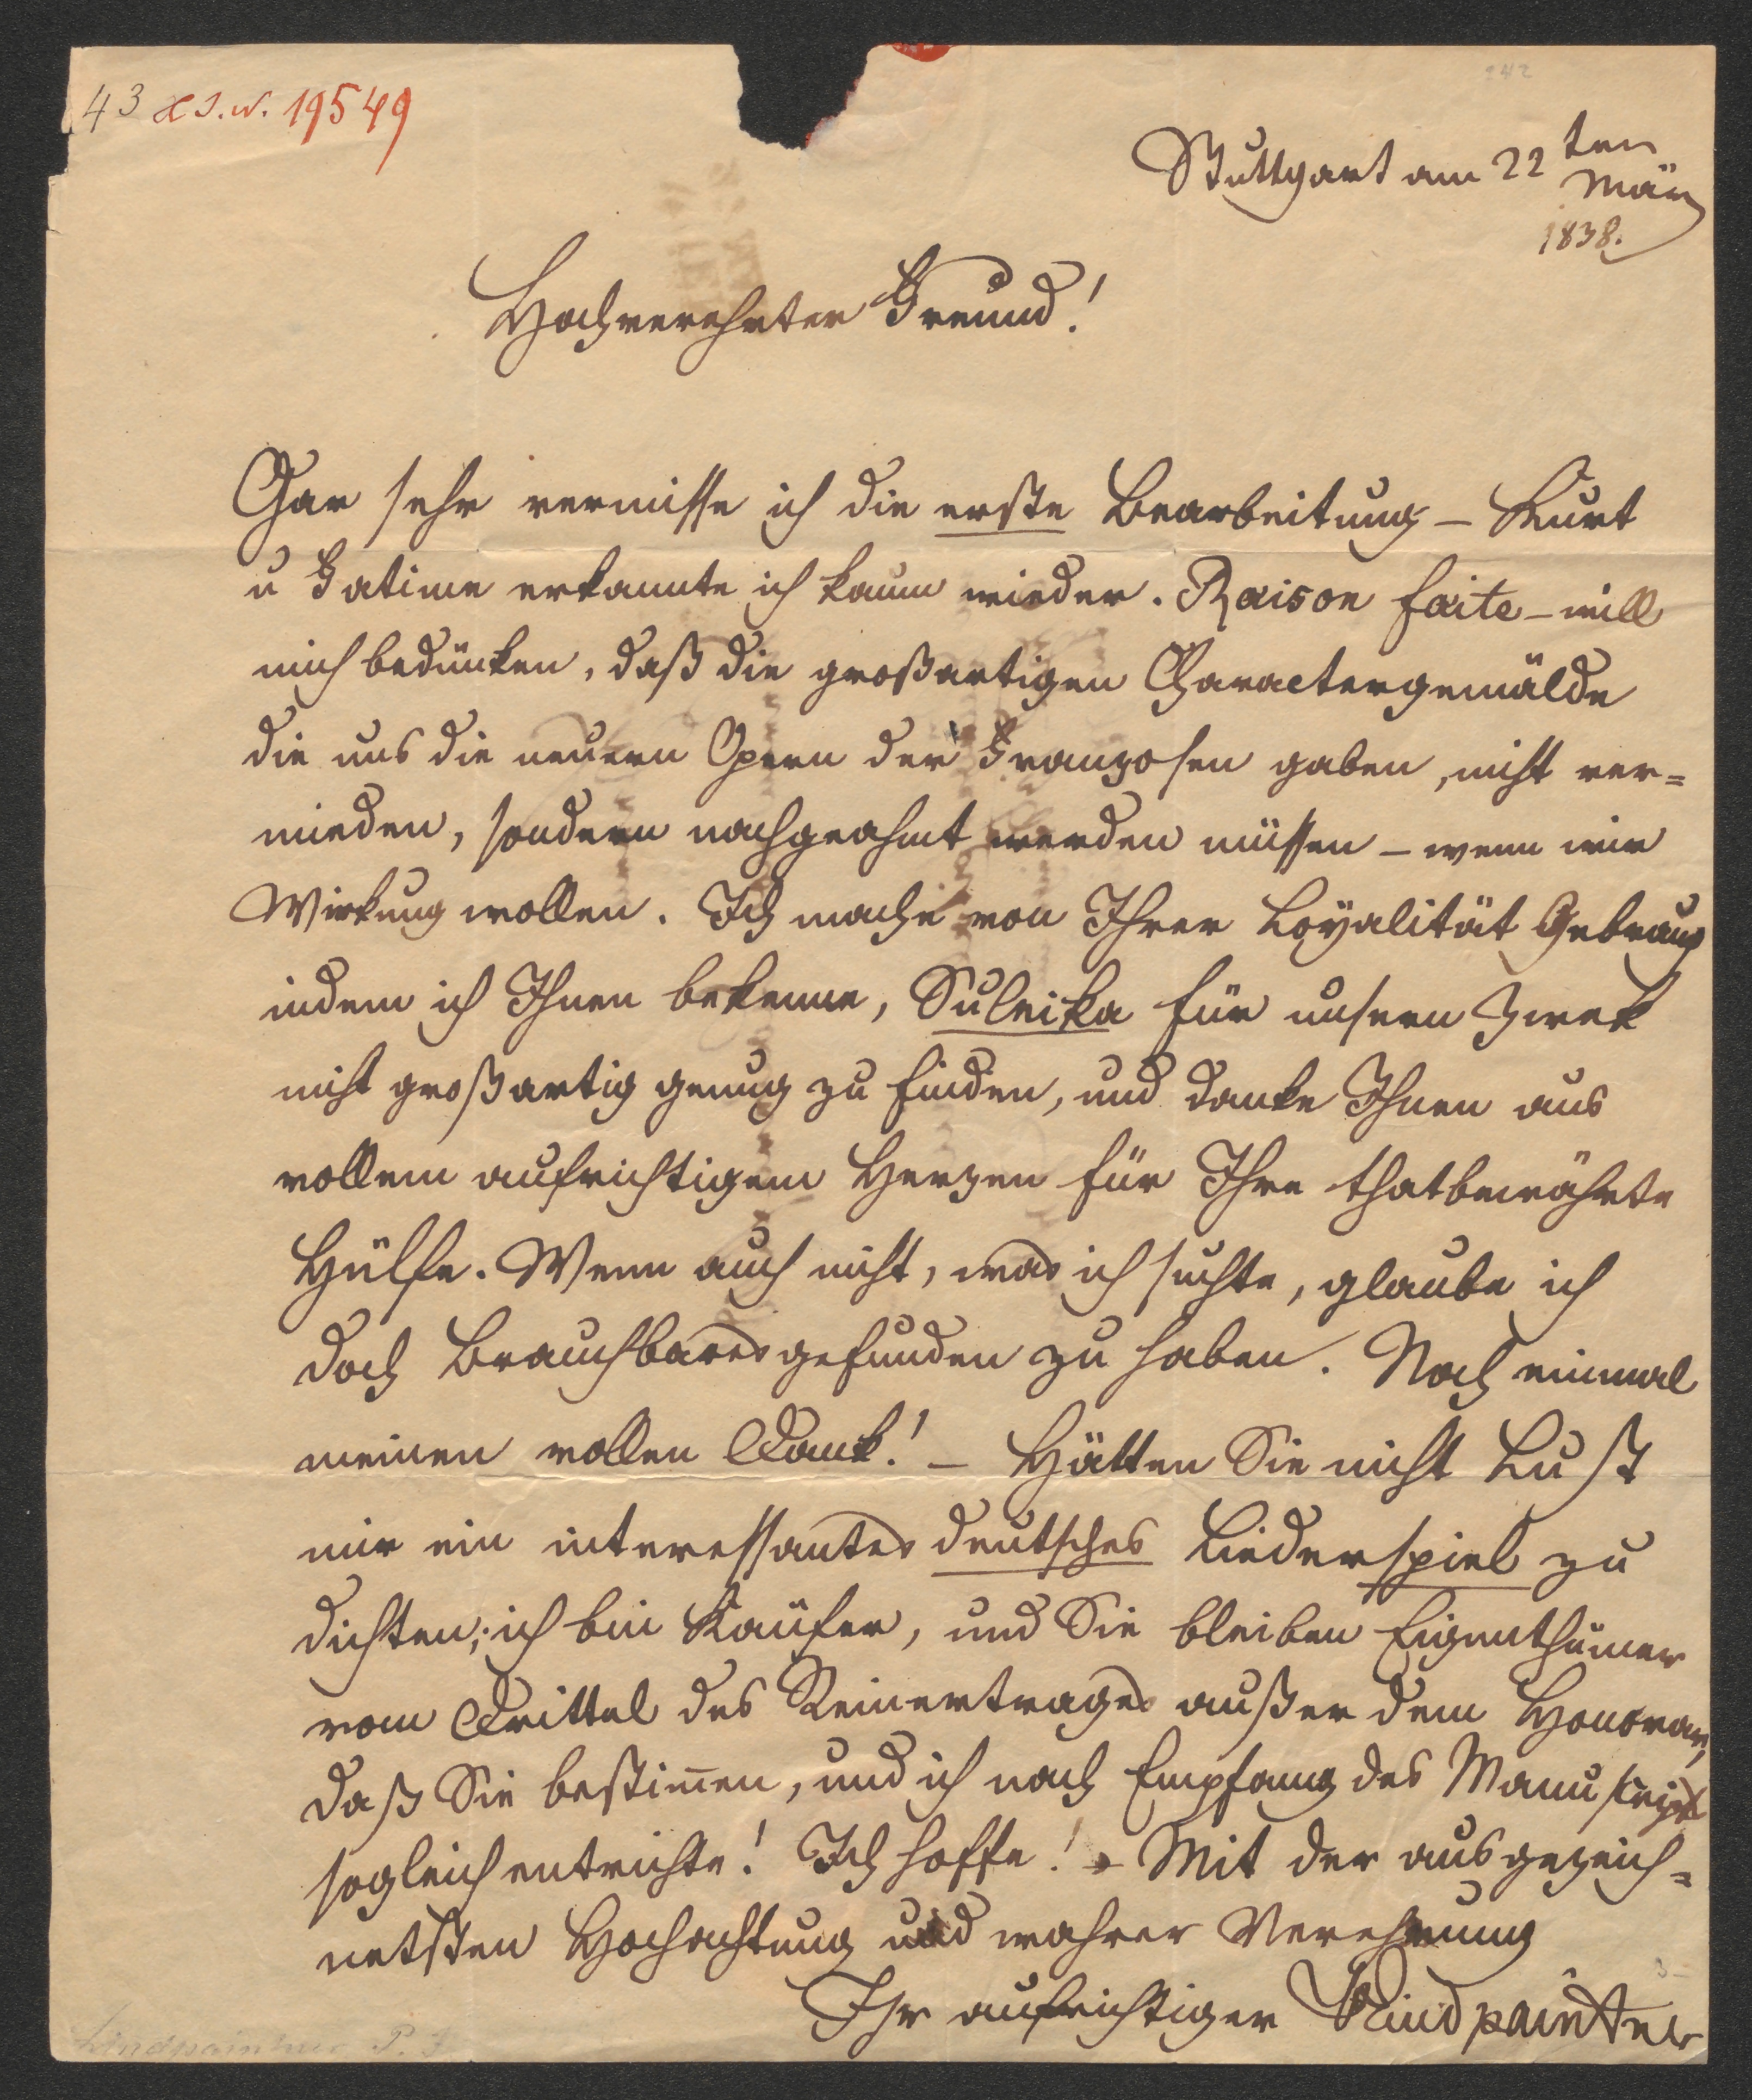 43 H.I.N. 19549
242
Stuttgart am 22ten
März
1838.
Hochverehrter Freund!
Gar sehr vermisse ich die erste Bearbeitung – Kurt
u Fatime erkannte ich kaum wieder. Raison faite – will
mich bedünken, daß die großartigen Charactergemälde
die uns die neuern Opern der Franzosen gaben, nicht ver=
mieden, sondern nachgeahmt werden müssen – wenn wir
Wirkung wollen. Ich mache von Ihrer Loyalität Gebrauch
indem ich Ihnen bekenne, Suleika für unsern Zwek
nicht großartig genug zu finden, und danke Ihnen aus
vollem aufrichtigem Herzen für Ihre thatbewährte
Hülfe. Wenn auch nicht, was ich suchte, glaube ich
doch Brauchbares gefunden zu haben. Noch einmal
meinen vollen Dank! – Hätten Sie nicht Lust
mir ein interessantes deutsches Liederspiel zu
dichten; ich bin Käufer, und Sie bleiben Eigenthümer
vom Drittel des Reinertrages außer dem Honorar,
daß Sie bestim̄en, und ich nach Empfang des Manuskript
sogleich entrichte! Ich hoffe! – Mit der ausgezeich=
netsten Hochachtung und wahrer Verehrung
Ihr aufrichtiger Lindpaintner
3–
Lindpaintner P. J.